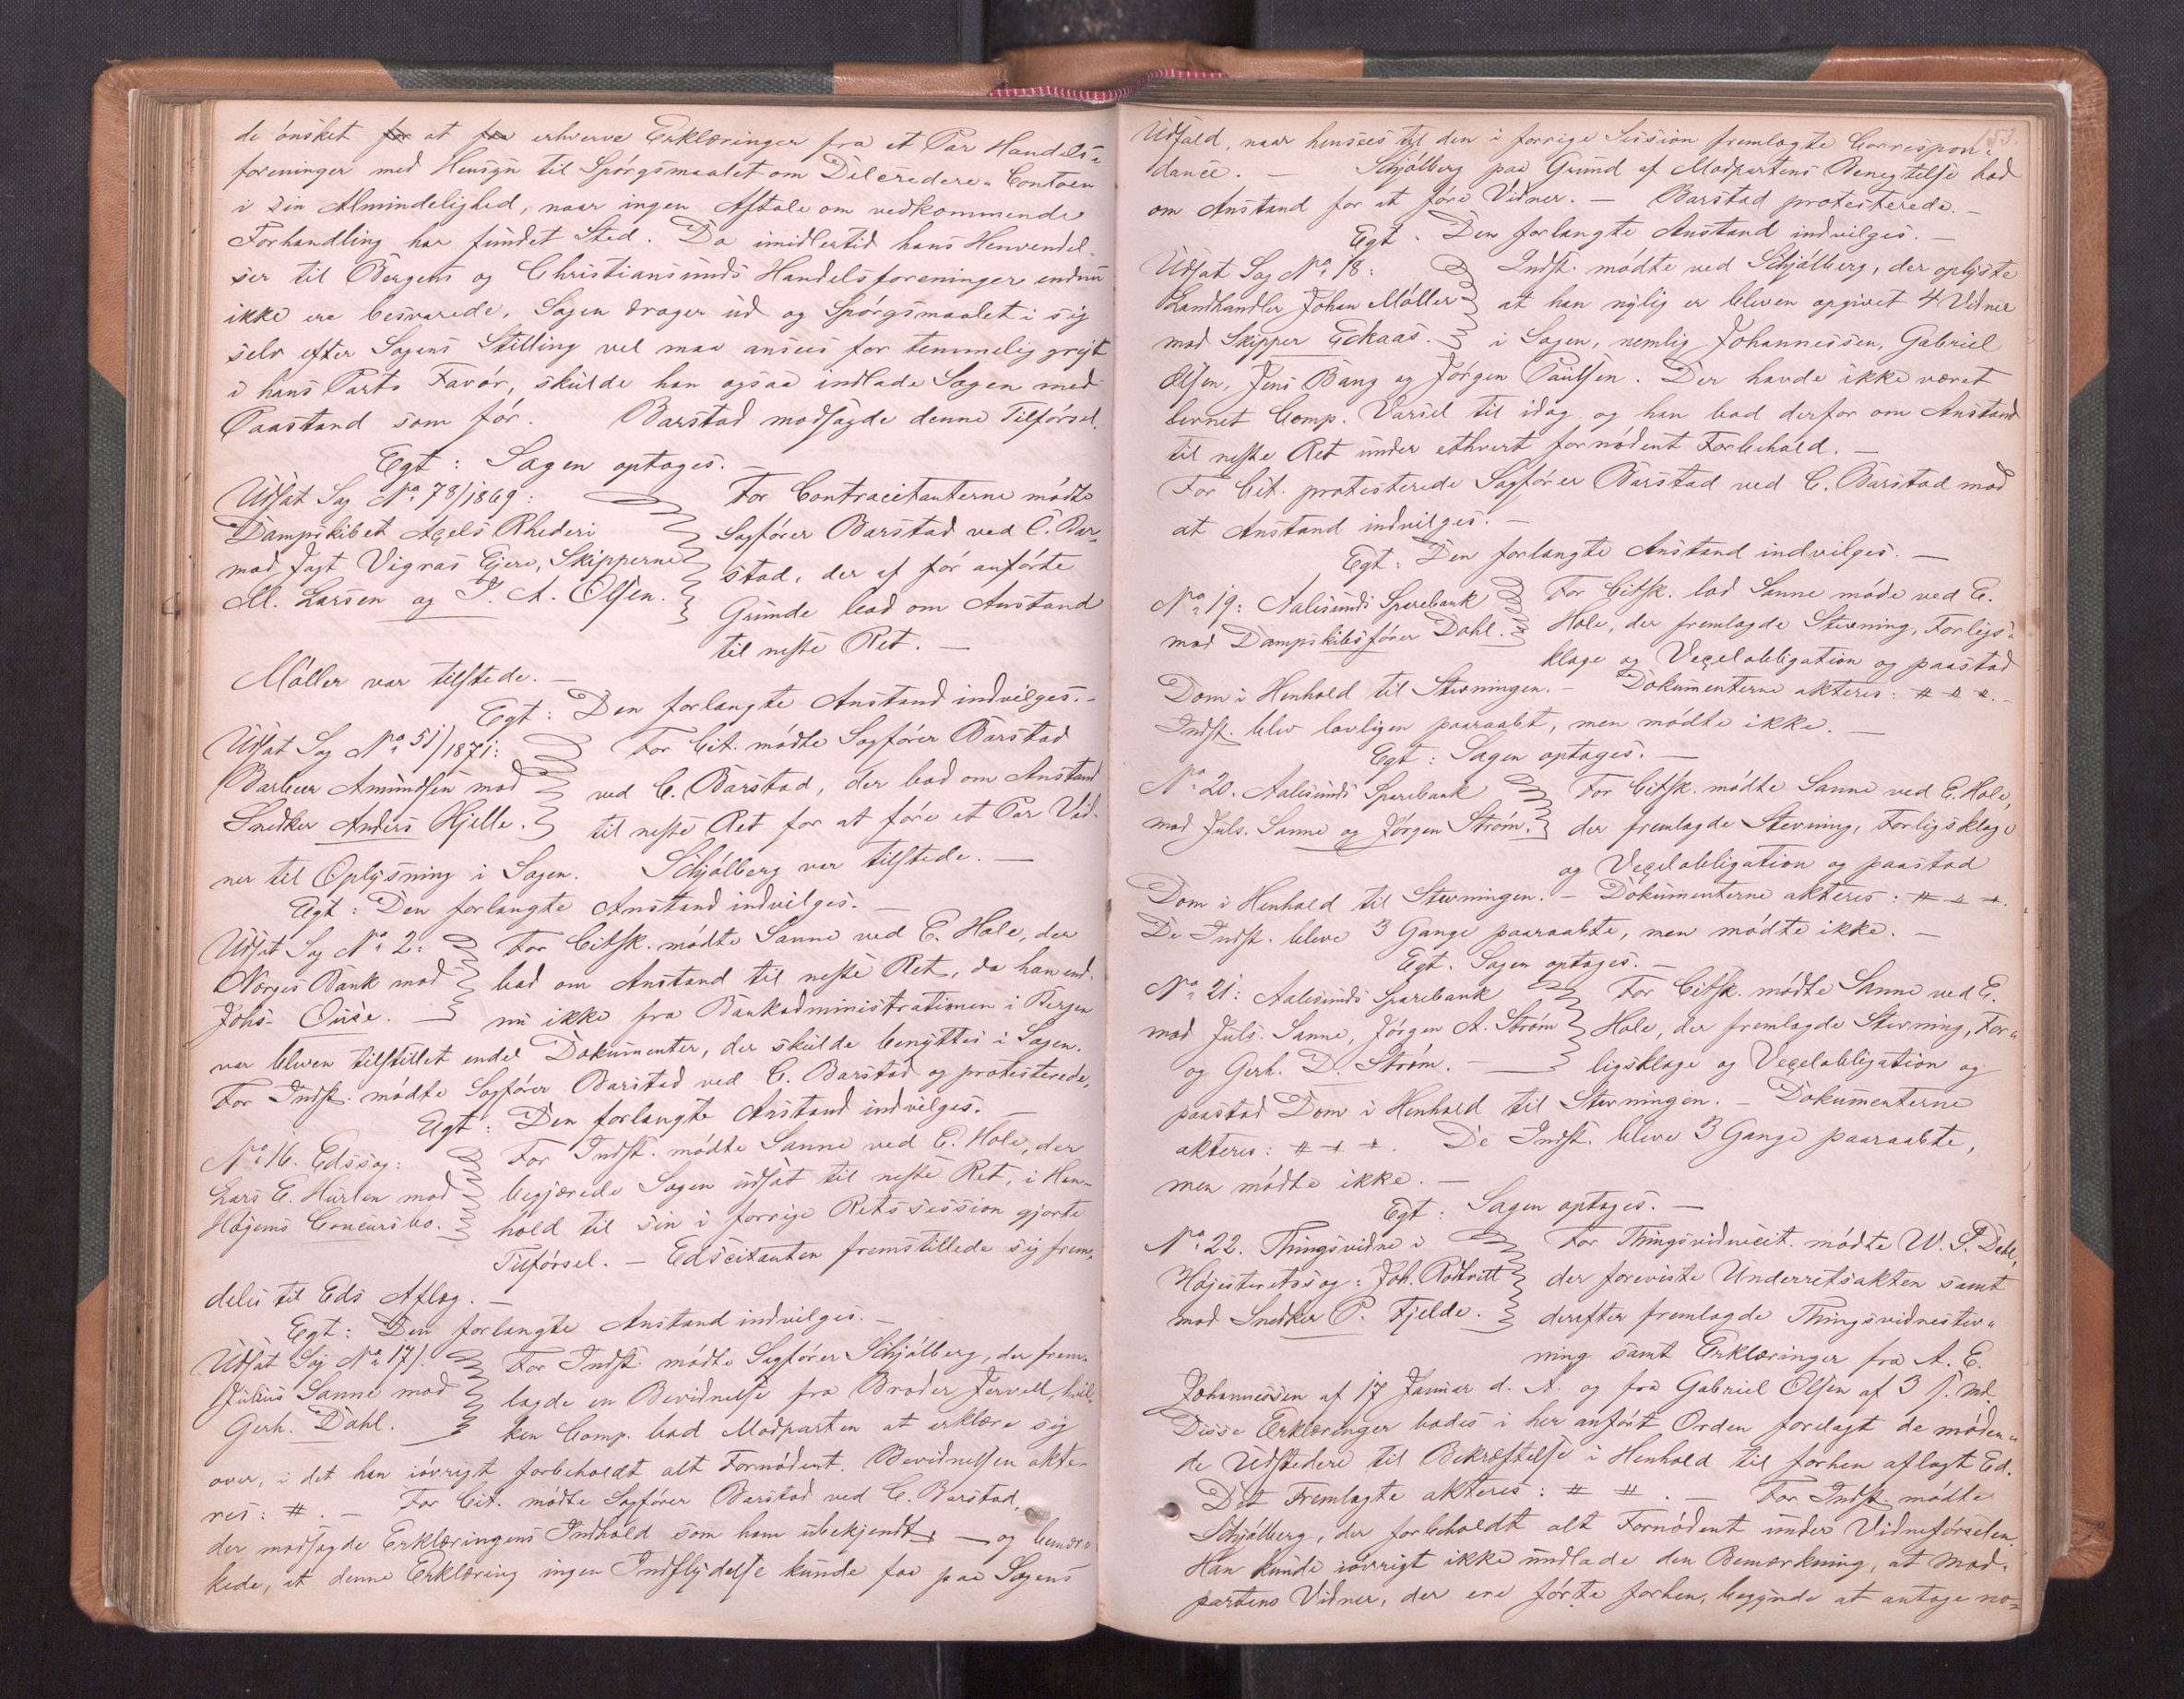 de ønsket for at faa erhverve Erklæringer fra et Par Handels-
foreninger med Hensyn til Spørgsmaalet om Delcredere-Contoen
i sin Almindelighed, naar ingen Aftale om vedkommende
Forhandling har fundet Sted. Da imidlertid hans Henvendel-
ser til Bergens og Christiansunds Handelsforeninger endnu
ikke ere besvarede, Sagen drager ud og Spørgsmaalet i sig
selv efter Sagens Stilling vel maa ansees for temmelig greit
i hans Parts Favør, skulde han ogsaa indlade Sagen med
Paastand som før. Barstad modsagde denne Tilførsel.
Egt: Sagen optages. —
Udsat Sag No 78/1869:
Dampskibet Axels Rhederi
mod Jagt Vigras Ejere, Skipperne
M. Larsen og P. A. Olsen.
For Contracitanterne mødte
Sagfører Barstad ved C. Bar-
stad, der af før anførte
Grunde bad om Anstand
til neste Ret. —
Møller var tilstede. —
Egt: Den forlangte Anstand indvilges. -
Udsat Sag No 51/1871:
Barbeer Amundsen mod
Snedker Anders Hjelle.
For Cit. mødte Sagfører Barstad
ved C. Barstad, der bad om Anstand
til neste Ret for at føre et Par Vid-
ner til Oplysning i Sagen. Schjølberg var tilstede. —
Egt: Den forlangte Anstand indvilges. —
Udsat Sag No 2:
Norges Bank mod
Johs. Ouse. —
For Citsk. mødte Sanne ved E. Hole, der
bad om Anstand til neste Ret, da han end-
nu ikke fra Bankadministrationen i Bergen
var bleven tilstillet endel Dokumenter, der skulde benyttes i Sagen.
For Indst. mødte Sagfører Barstad ved C. Barstad og protesterede.
Egt: Den forlangte Anstand indvilges. —
No 16. Edssag:
Lars E. Hurlen mod
Høgems Concursbo.
For Indst. mødte Sanne ved E. Hole, der
begjærede Sagen udsat til neste Ret, i Hen-
hold til sin i forrige Retssession gjorte
Tilførsel. — Edscitanten fremstillede sig frem-
deles til Eds Aflæg. —
Egt: Den forlangte Anstand indvilges. —
Udsat Sag No 17/.
Julius Sanne mod
Gerh. Dahl.
For Indst. mødte Sagfører Schjølberg, der frem-
lagde en Bevidnelse fra Broder Jervell, hvil-
ken Comp. bad Modparten at erklære sig
over, i det han iøvrigt forbeholdt alt Fornødent. Bevidnelsen akte-
res: #. — For Cit. mødte Sagfører Barstad ved C. Barstad,
der modsagde Erklæringens Indhold som ham ubekjendt — og bemær-
kede, at denne Erklæring ingen Indflydelse kunde faa paa Sagens
153.
Udfald, naar hensees til den i forrige Session fremlagte Correspon-
dance. — Schjølberg paa Grund af Modpartens Benegtelse bad
om Anstand for at føre Vidner. — Barstad protesterede. —
Egt. Den forlangte Anstand indvilges. —
Udsat Sag No 18:
Landhandler Johan Møller
mod Skipper Eckaas.
Indst. mødte ved Schjølberg, der oplyste
at han nylig er bleven opgivet 4 Vidner
i Sagen, nemlig Johannessen, Gabriel
Olsen, Jens Bang og Jørgen Paulsen. Der havde ikke været
levnet Comp. Varsel til idag og han bad derfor om Anstand
til neste Ret under ethvert fornødent Forbehold. —
For Cit. protesterede Sagfører Barstad ved C. Barstad mod
at Anstand indvilges. —
Egt: Den forlangte Anstand indvilges. —
No 19: Aalesunds Sparebank
mod Dampskibsfører Dahl.
For Citsk. lod Sanne møde ved E.
Hole, der fremlagde Stevning, Forligs-
klage og Vexelobligation og paastod
Dom i Henhold til Stevningen. — Dokumenterne akteres: # # #. -
Indst. blev lovligen paaraabt, men mødte ikke. —
Egt: Sagen optages. —
No 20. Aalesunds Sparebank
mod Juls. Sanne og Jørgen Strøm.
For Citsk. mødte Sanne ved E. Hole,
der fremlagde Stevning, Forligsklage
og Vexelobligation og paastod
Dom i Henhold til Stevningen. — Dokumenterne akteres: # # #.
De Indst. bleve 3 Gange paaraabte, men mødte ikke. —
Egt. Sagen optages. —
No 21: Aalesunds Sparebank
mod Juls. Sanne, Jørgen A. Strøm
og Gerh. D. Strøm. —
For Citsk. mødte Sanne ved E.
Hole, der fremlagde Stevning, For-
ligsklage og Vexelobligation og
paastod Dom i Henhold til Stevningen. — Dokumenterne
akteres: # # #. De Indst. bleve 3 Gange paaraabte,
men mødte ikke. —
Egt: Sagen optages. —
No 22. Thingsvidne i
Højesteretssag: Joh. Rødtvitt
mod Snedker P. Fjelde.
For Thingsvidnecit. mødte W. S. Dahl,
der foreviste Underretsakten samt
derefter fremlagde Thingsvidnestev-
ning samt Erklæringer fra A. E.
Johannessen af 17 Januar d. A. og fra Gabriel Olsen af 3 f. Md.
Disse Erklæringer bades i her anført Orden forelagt de møden-
de Udstedere til Bekræftelse i Henhold til forhen aflagt Ed.
Det Fremlagte akteres: # #. — For Indst. mødte
Schjølberg, der forbeholdt alt Fornødent under Vidneførselen.
Han kunde iøvrigt ikke undlade den Bemærkning, at Mod-
partens Vidner, der ere førte forhen, begynde at antage no-